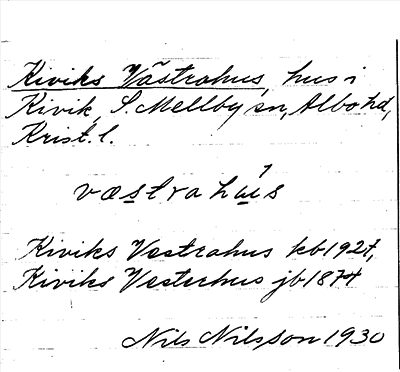 Kiviks Västrahus, hus i
Kivik, S. Mellby sn, Albo hd,
Krist. l.
væstrahús
Kiviks Vestrahus kb 1927,
Kiviks Vesterhus jb 1874
Nils Nilsson 1930